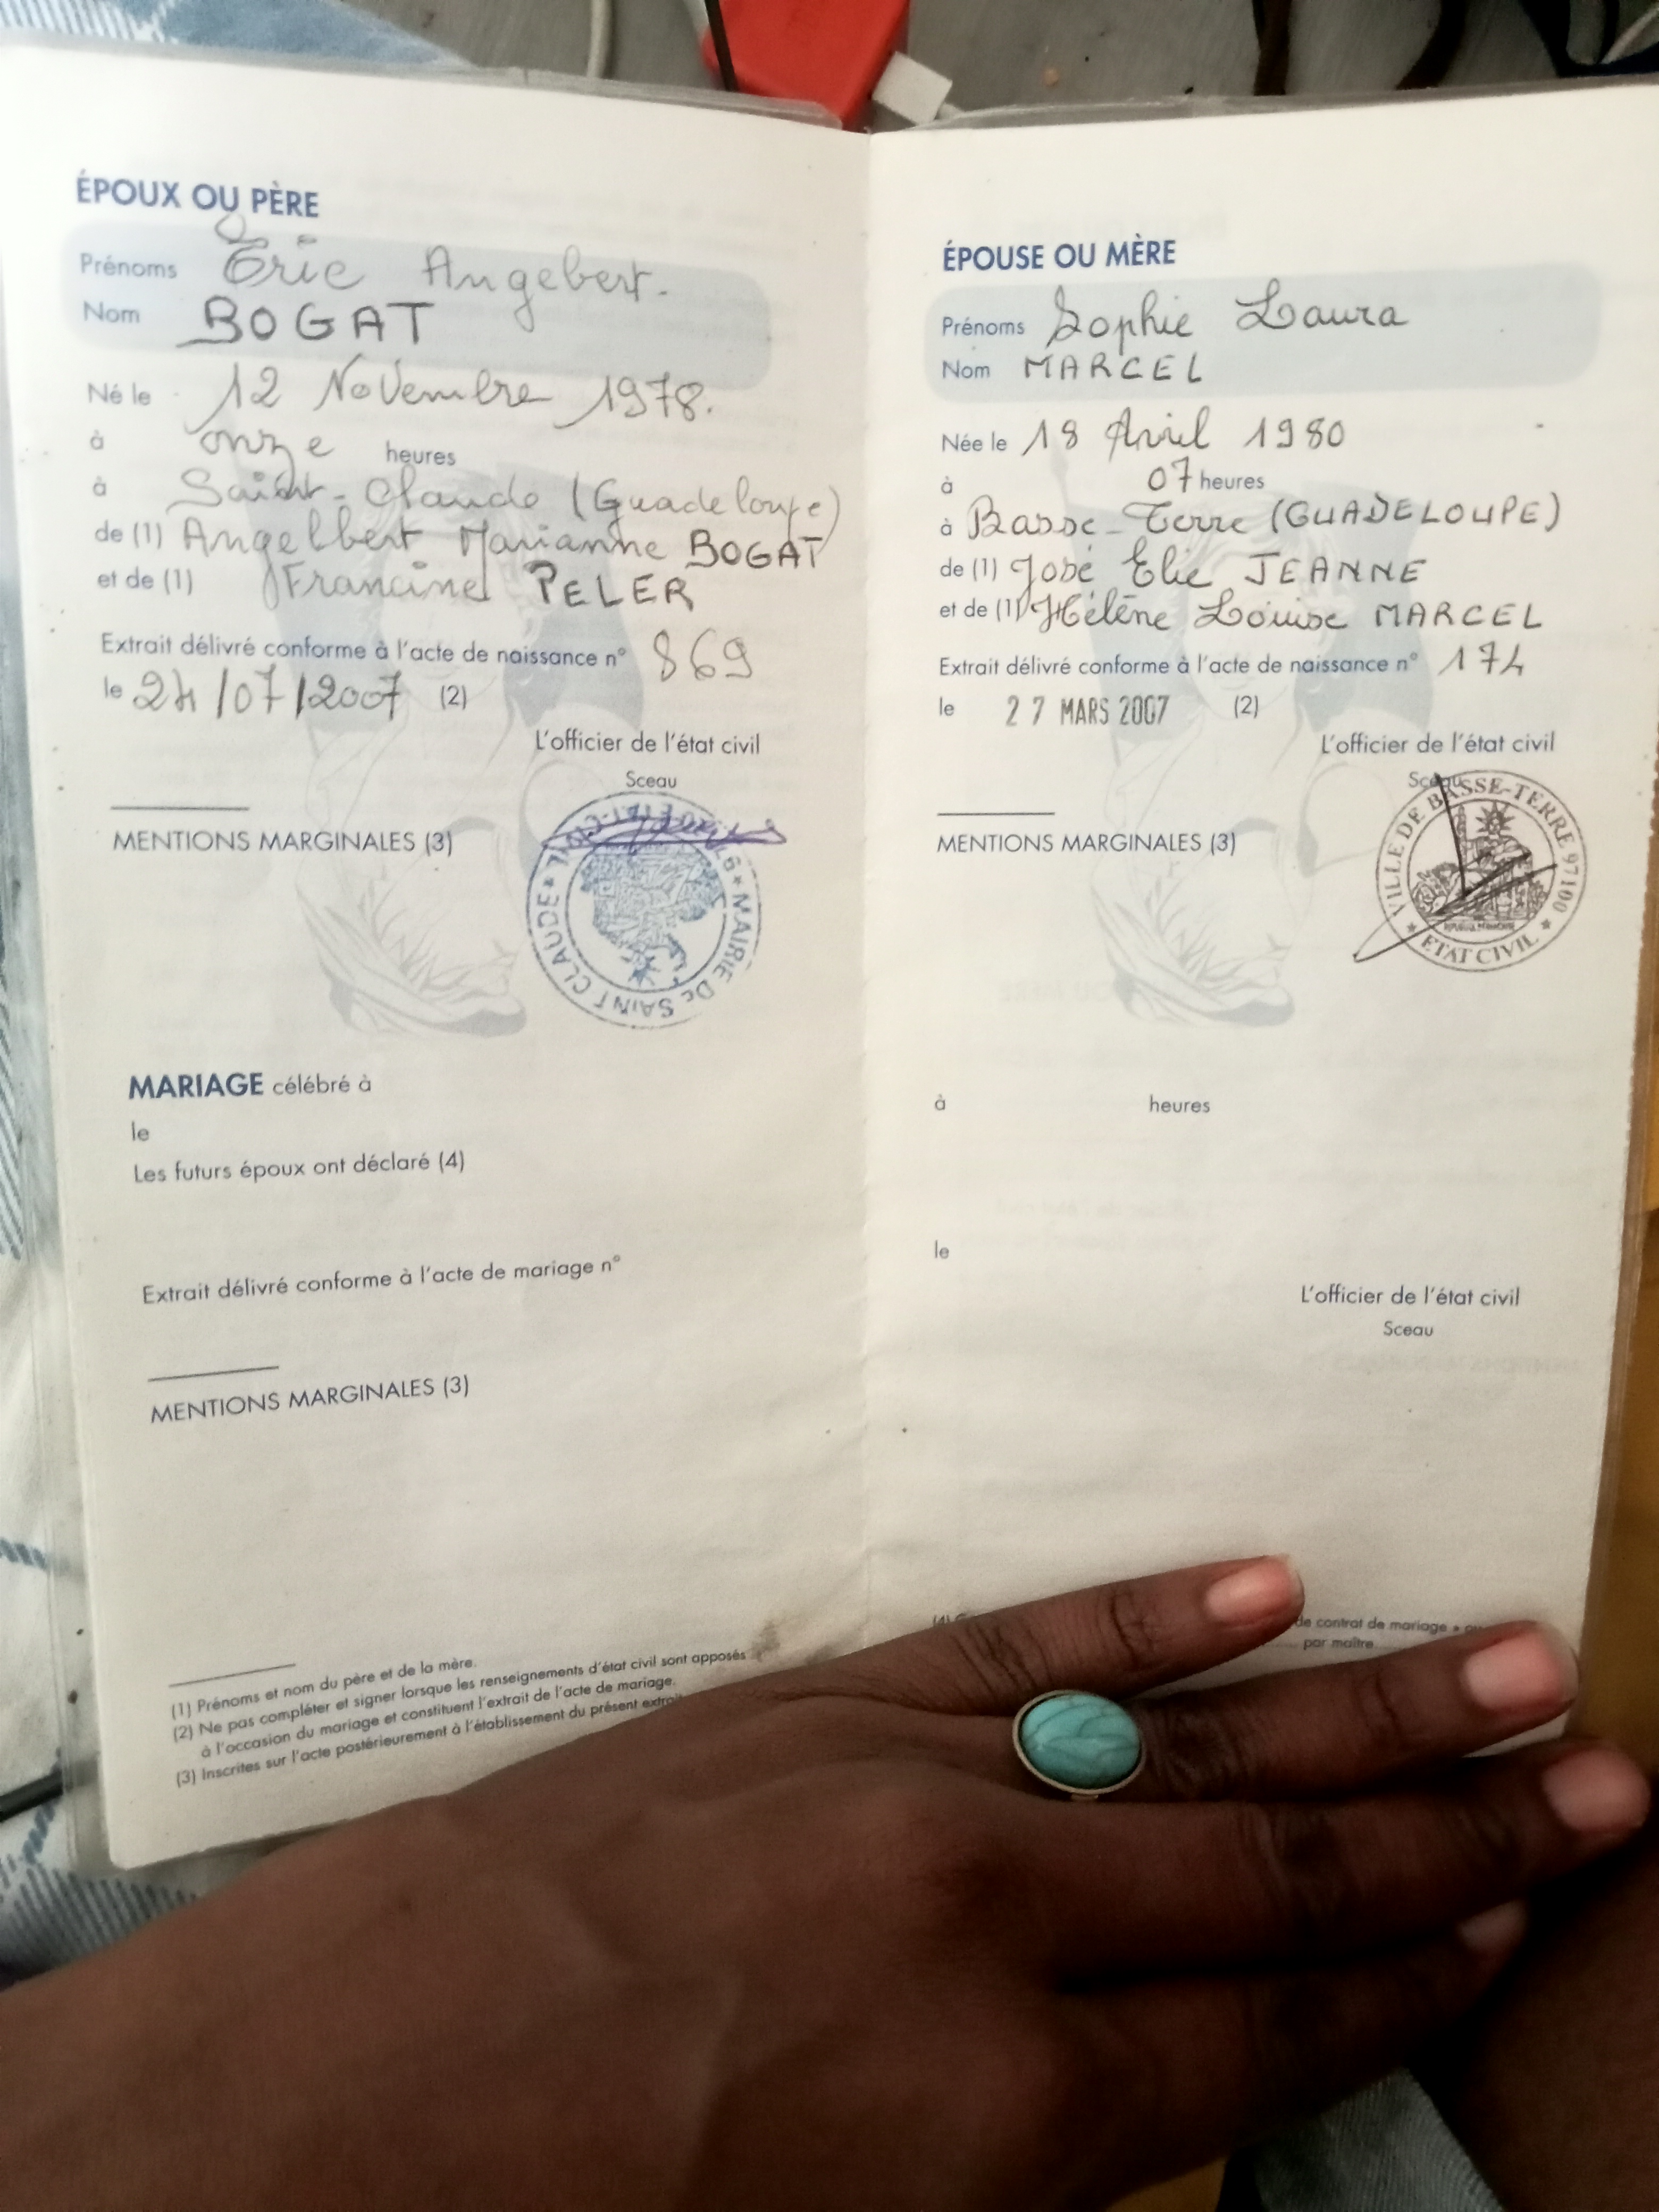 ÉPOUX OU PÈRE
Prénoms Éric Angebert.
Nom BOGAT
Né le 12 Novembre 1978.
à onze heures
à Saint-Claude (Guadeloupe)
de (1) Angelbert Marianne BOGAT
et de (1) Francine PELER
Extrait délivré conforme à l'acte de naissance n° 869
le 24/07/2007 (2)
L'officier de l'état civil
Sceau
MAIRIE De SAINT CLAUDE
MENTIONS MARGINALES (3)
MARIAGE célébré à
le
Les futurs époux ont déclaré (4)
Extrait délivré conforme à l'acte de mariage n°
MENTIONS MARGINALES (3)
(1) Prénoms et nom du père et de la mère.
(2) Ne pas compléter et signer lorsque les renseignements d'état civil sont apposés
à l'occasion du mariage et constituent l'extrait de l'acte de mariage.
(3) Inscrites sur l'acte postérieurement à l'établissement du présent
ÉPOUSE OU MÈRE
Prénoms Sophie Laura
Nom MARCEL
Née le 18 Avril 1980
à 07 heures
à Basse-Terre (GUADELOUPE)
de (1) José Elie JEANNE
et de (1) Hélène Louise MARCEL
Extrait délivré conforme à l'acte de naissance n° 174
le 27 MARS 2007 (2)
L'officier de l'état civil
Sceau
VILLE DE BASSE-TERRE 97100
ETAT CIVIL
MENTIONS MARGINALES (3)
à heures
le
L'officier de l'état civil
Sceau
de contrat de mariage »
par maître